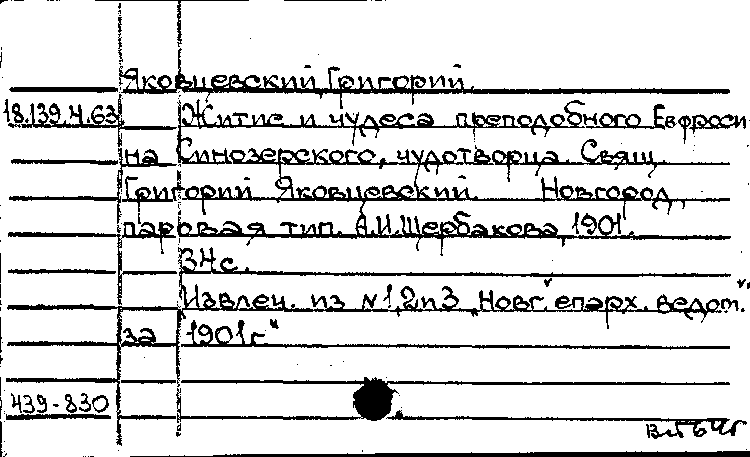 Яковцевский, Григорий.
18.139.4.63 Житие и чудеса преподобного Евфроси
на Синозерского, чудотворца. Свящ.
Григорий Яковцевский. Новгород,
паровая тип. А.И.Щербакова, 1901.
34с.
Извлеч. из №1,2и3 „Новг. епарх. ведом."
за 1901г"
439-830